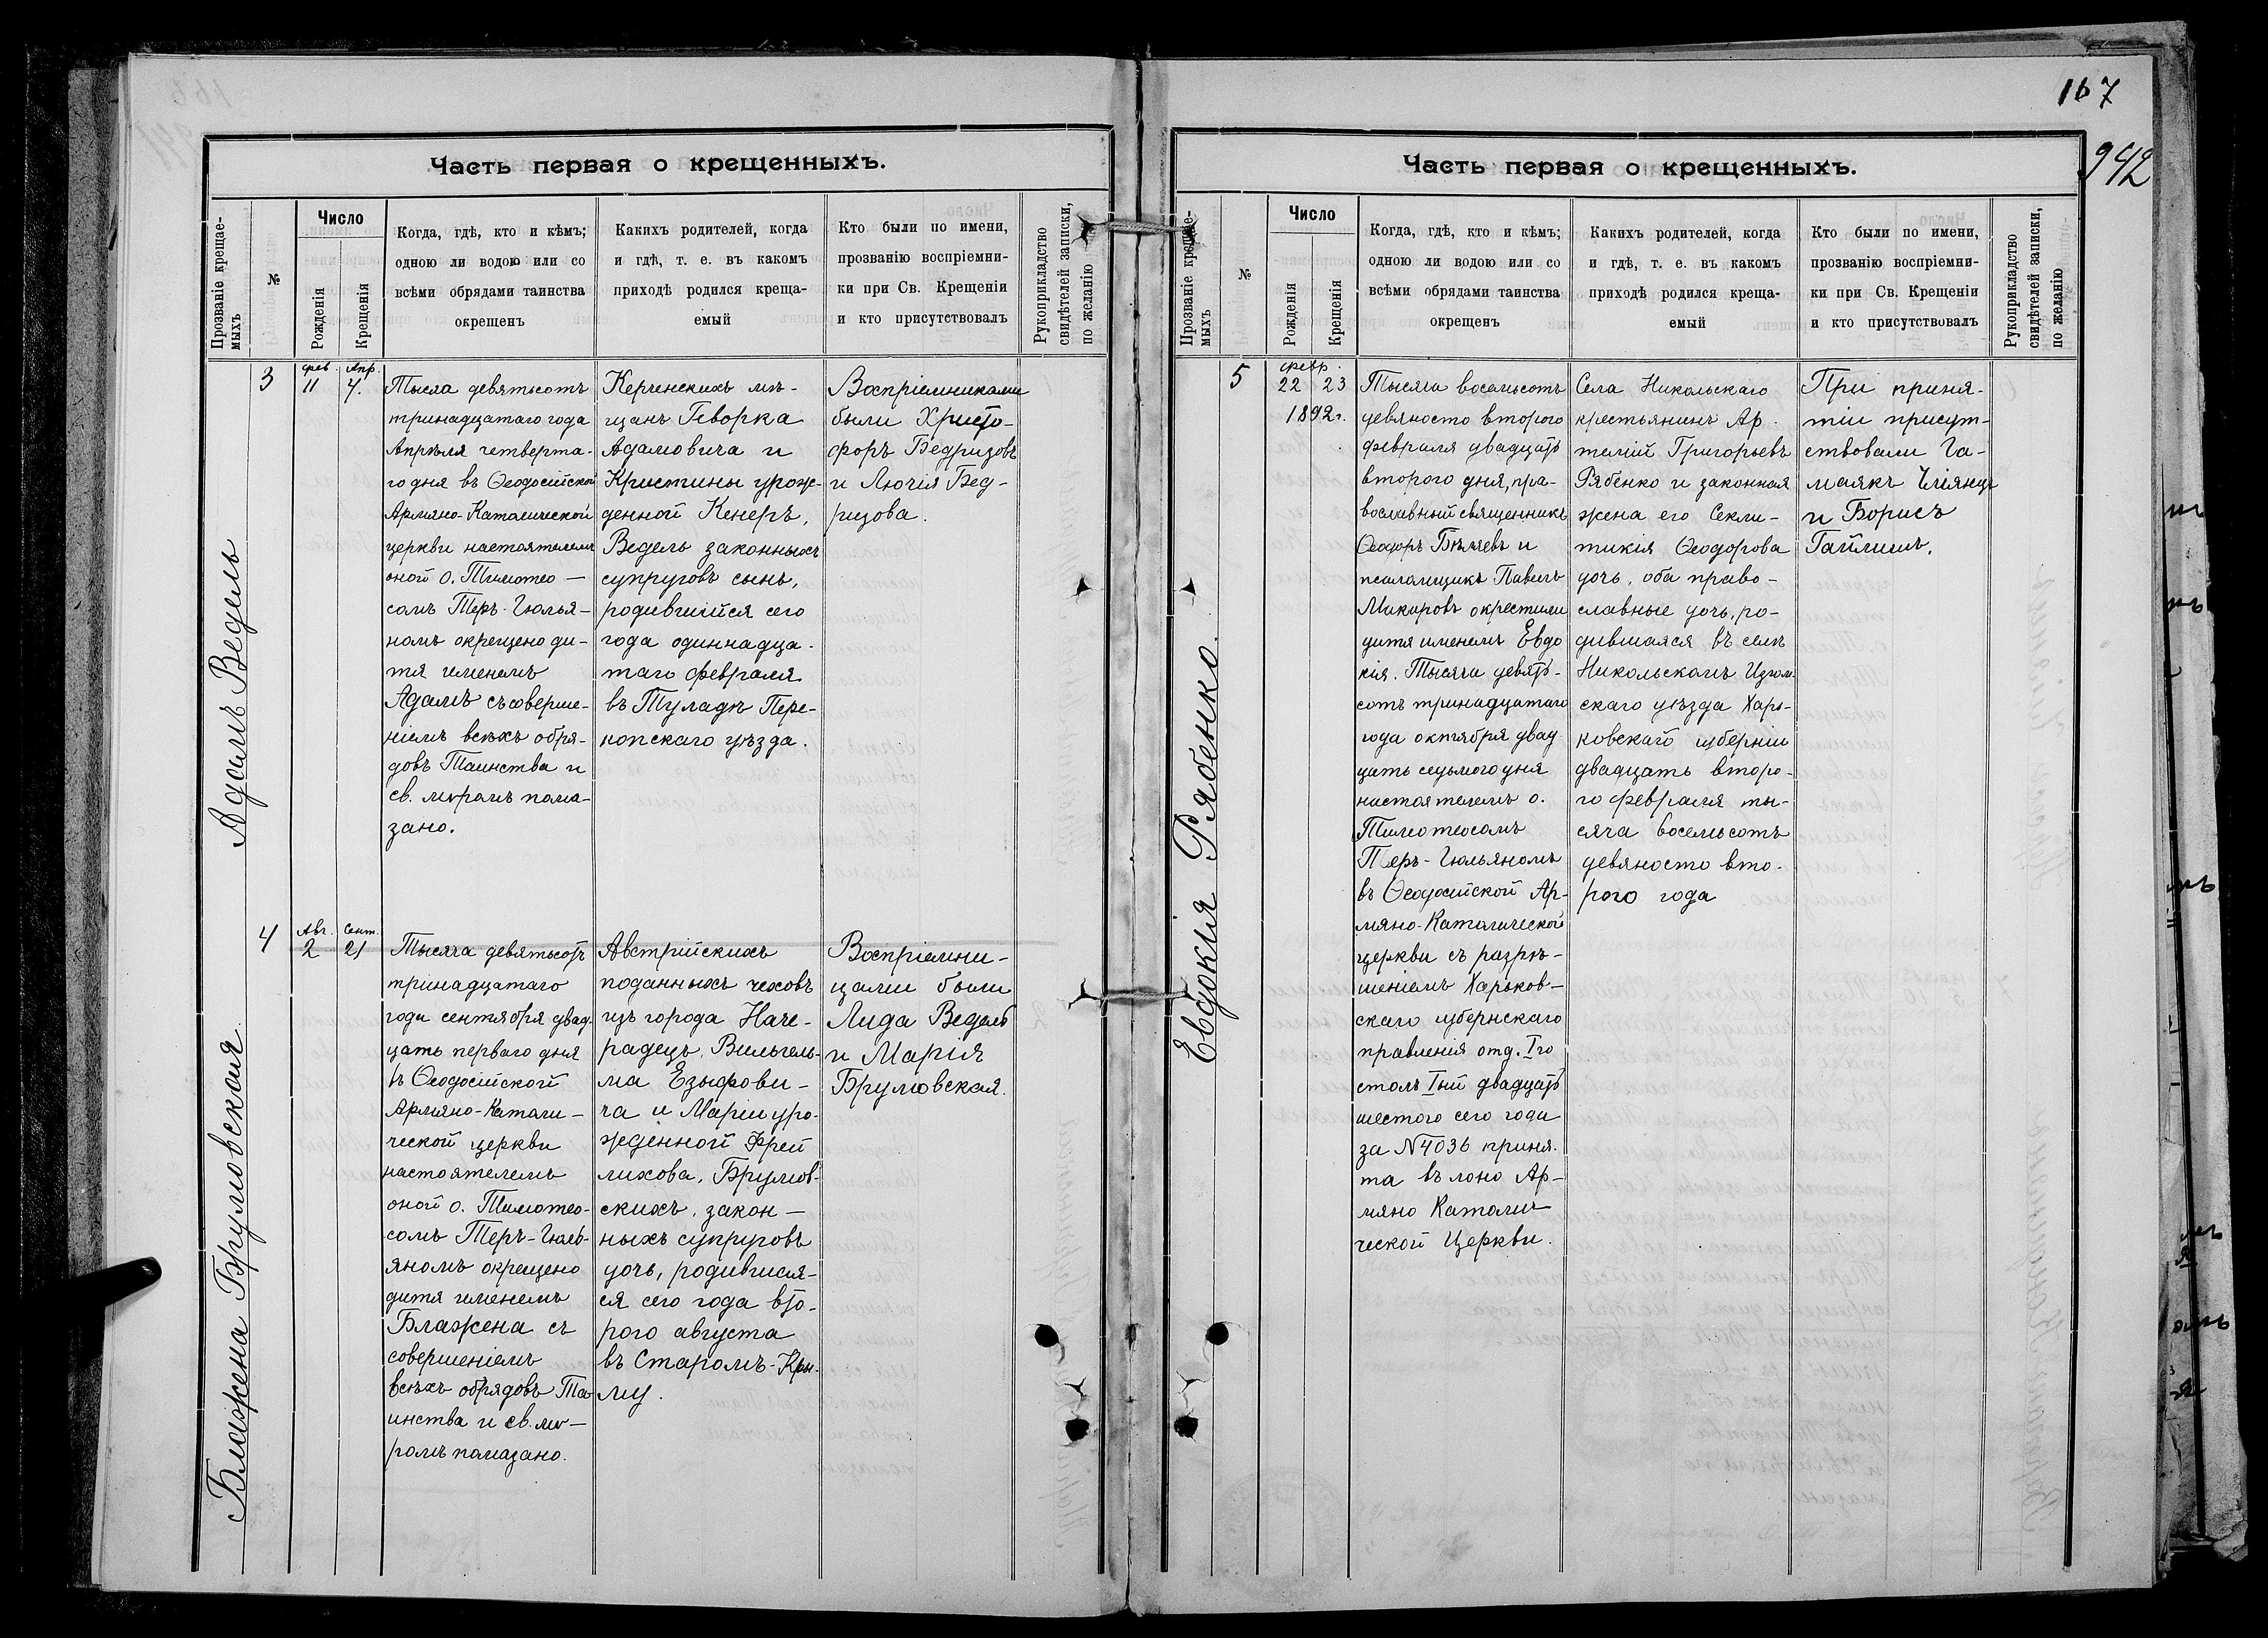 167
942
Часть первая о крещенныхъ.
Прозваніе крещае-
мыхъ
№
Число
Рожденія
Крещенія
Когда, гдѣ, кто и кѣмъ;
одною ли водою или со
всѣми обрядами таинства
окрещенъ
Какихъ родителей, когда
и гдѣ, т. е. въ какомъ
приходѣ родился креща-
емый
Кто были по имени,
прозванію воспріемни-
ки при Св. Крещеніи
и кто присутствовалъ
Рукоприкладство
свидѣтелей записки,
по желанію
Адамъ Ведель
3
фев. Апр.
11 4.
Тысяча девятьсотъ
тринадцатаго года
Апрѣля четверта-
го дня въ Ѳеодосійской
Армяно-Католической
церкви настоятелемъ
оной о. Тимотео-
сомъ Теръ-Гюлья-
номъ окрещено ди-
тя именемъ
Адамъ съ соверше-
ніемъ всѣхъ обря-
довъ Таинства и
св. мѵромъ пома-
зано.
Керченскихъ мѣ-
щанъ Геворка
Адамовича и
Кристины урож-
денной Кенеръ,
Ведель законныхъ
супруговъ сынъ,
родившійся сего
года одиннадца-
таго февраля
въ Туладѣ Пере-
копскаго уѣзда.
Воспріемниками
были Христо-
форъ Бедризовъ
и Лючія Бед-
ризова.
Блажена Брумовская
4
Авг. Сент.
2 21
Тысяча девятьсотъ
тринадцатаго
года сентября двад-
цать перваго дня
въ Ѳеодосійской
Армяно-Католи-
ческой церкви
настоятелемъ
оной о. Тимотео-
сомъ Теръ-Гюль-
яномъ окрещено
дитя именемъ
Блажена съ
совершеніемъ
всѣхъ обрядовъ Та-
инства и св. мѵ-
ромъ помазано.
Австрійскихъ
поданныхъ чеховъ
изъ города Наче-
радецъ, Вильгель-
ма Езыфови-
ча и Маріи уро-
жденной Фрей
лихова, Брумов-
скихъ, закон-
ныхъ супруговъ
дочь, родившая-
ся сего года вто-
рого августа
въ Старомъ-Кры-
му.
Воспріемни-
цами были
Лида Ведель
и Марія
Брумовская.
Часть первая о крещенныхъ.
Прозваніе крещае-
мыхъ
№
Число
Рожденія
Крещенія
Когда, гдѣ, кто и кѣмъ;
одною ли водою или со
всѣми обрядами таинства
окрещенъ
Какихъ родителей, когда
и гдѣ, т. е. въ какомъ
приходѣ родился креща-
емый
Кто были по имени,
прозванію воспріемни-
ки при Св. Крещеніи
и кто присутствовалъ
Рукоприкладство
свидѣтелей записки,
по желанію
Евдокія Рябенко.
5
февр.
22 23
1892г.
Тысяча восемьсотъ
девяносто второго
февраля двадцать
второго дня, пра-
вославный священникъ
Ѳеодоръ Бѣляевъ и
псаломщикъ Павелъ
Макаровъ окрестили
дитя именемъ Евдо
кія. Тысяча девять-
сотъ тринадцатаго
года октября двад
цать седьмого дня
настоятелемъ о.
Тимотеосомъ
Теръ-Гюльяномъ
въ Ѳеодосійской Ар-
мяно-Католической
церкви съ разрѣ-
шеніемъ Харьков-
скаго губернскаго
правленія отд. Iго
столъ Iый двадцать
шестого сего года
за №4036 приня-
та въ лоно Ар-
мяно Католи-
ческой Церкви.
Села Никольскаго
крестьянинъ Ар-
темій Григорьевъ
Рябенко и законная
жена его Секли-
тикія Ѳеодорова
дочь, оба право-
славные дочь, ро-
дившаяся въ селѣ
Никольскомъ Изюм-
скаго уѣзда Харь-
ковскаго губерніи
двадцать второ-
го февраля ты-
сяча восемьсотъ
девяносто вто-
рого года
При приня-
тіи присут-
ствовали Га-
маякъ
и Борисъ